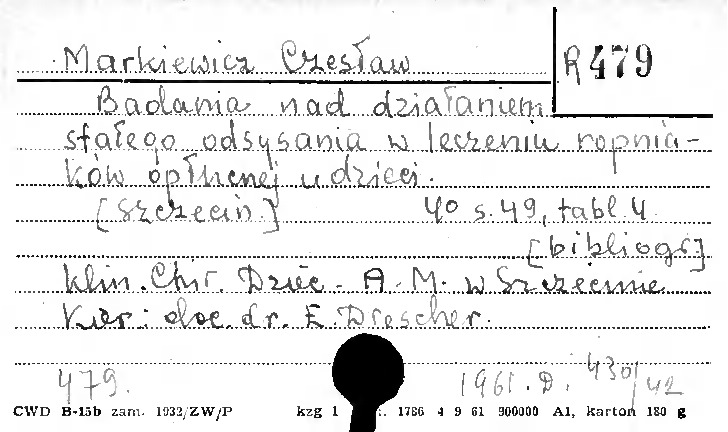 Markiewicz Czesław
R 479
Badania nad działaniem
stałego odsysania w leczeniu ropnia-
ków opłucnej u dzieci.
[Szczecin] 4° s. 49, tabl. 4
[bibliogr]
Klin. Chir. Dziec. A. M. w Szczecinie
Kier: doc. dr. E. Drescher.
479. 1961. D. 430/42
CWD B-15b zam. 1932/ZW/P kzg 1 1786 4 9 61 900000 A1, karton 180 g